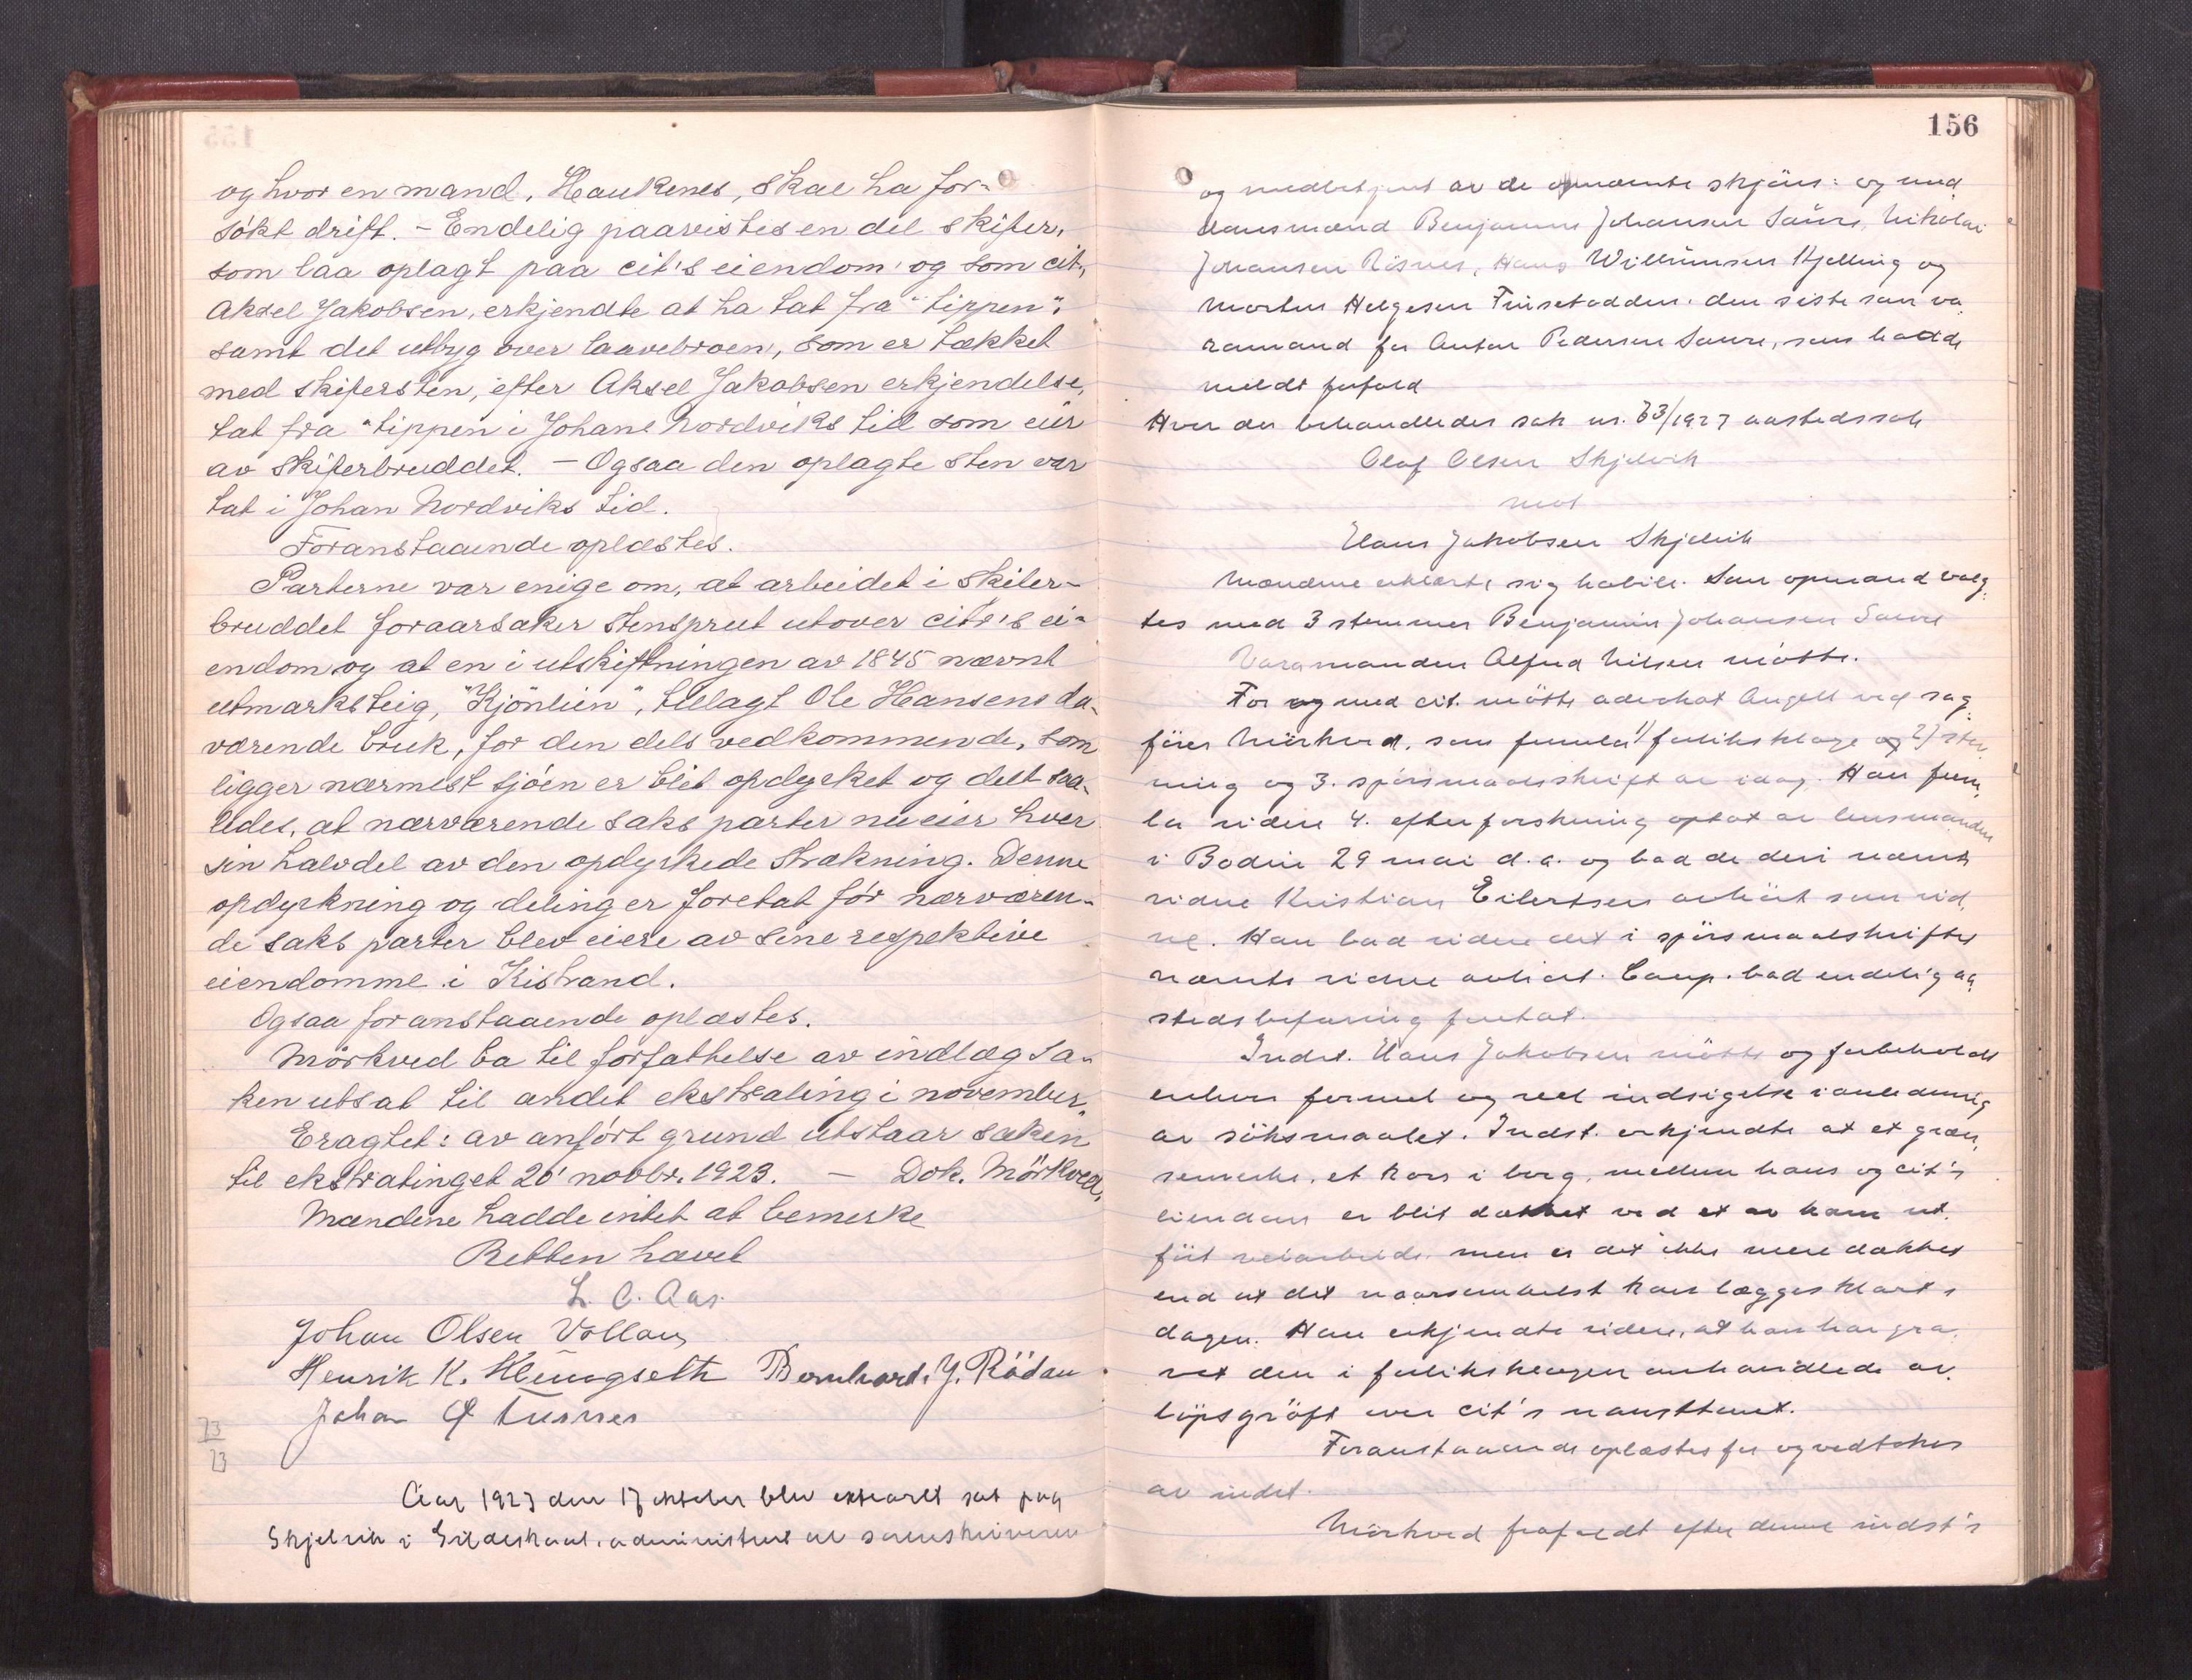 og hvor en mand, Haukenes, skal ha for-
søkt drift. - Endelig paavistes en del skifer,
som laa oplagt paa cit's eiendom og som cit,
Aksel Jakobsen, erkjendte at ha tat fra "tippen".
samt det utbyg over laavebroen, som er tækket
med skifersten, efter Aksel Jakobsen erkjendelse,
tat fra "tippen i Johan Nordviks tid som eier
av skiferbruddet. - Ogsaa den oplagte sten var
tat i Johan Nordviks tid.
Foranstaaende oplæstes.
Parterne var enige om, at arbeidet i skifer-
bruddet foraarsaker stensprut utover citr's ei-
endom og at en i utskiftningen av 1845 nævnt
utmarksteig, "Kjönlien", tillagt Ole Hansens da-
værende bruk, for den dels vedkommende, som
ligger nærmest sjøen er blit opdyrket og delt saa-
ledes, at nærværende saks parter nu eier hver
sin halvdel av den opdyrkede strækning. Denne
opdyrkning og deling er foretat før nærværen-
de saks parter blev eiere av sine respektive
eiendomme i Kistrand.
Ogsaa foranstaaende oplæstes.
Mörkved ba til forfattelse av indlæg sa-
ken utsat til andet ekstrating i november.
Eragtet: av anført grund utstaar saken
til ekstratinget 20' novbr. 1923. - Dok. Mörkved.
Mændene hadde intet at bemerke
Retten hævet
L. C. Aas.
Johan Olsen Vollan
Henrik K. Klungseth Bernhard. J. Rödau
Johan
73
23
Aar 1923 den 17 oktober blev ekstrarett sat paa
Skjelvik i Gildeskaal, administrert av sorenskriveren
156
og medbetjent av de opnævnte skjöns- og med
domsmænd Benjamin Johansen Saure, Nikolai
Johansen Risnes, Hans Willumsen Kjelling og
Morten Helgesen Finsetodden. den siste som va-
ramand for Anton Pedersen Saure, som hadde
meldt forfald
Hvor der behandledes sak nr. 73/1923 aastedssak
Olaf Olsen Skjelvik
mot
Hans Jakobsen Skjelvik
Mændene erklærte sig habile. Som opmand valg-
tes med 3 stemmer Benjamin Johansen Saure
Varamanden Alfred Nilsen mötte.
For og med cit. mötte advokat Angell ved sag-
förer Mörkved, som fremla 1/ forliksklage og 2/ stev
ning og 3. spörsmaalsskrift av idag. Han frem-
la videre 4. efterforskning optat av lensmanden
i Bodin 29 mai d. a. og bad de deri nævnte
vidne Kristian Eilertsen avhört som vid-
ne. Han bad videre det i spörsmaalskriftet
nævnte vidne avhört. Comp. bad endelig aa-
stedsbefaring foretat.
Indst. Hans Jakobsen mötte og forbeholdt
enhver formel og reel indsigelse i anledning
av söksmaalet. Indst. erkjendte at et græn-
semerke, et kors i berg, mellem hans og cit's
eiendom er blit dækket ved et av ham ut-
fört veiarbeide. men er det ikke mere dækket
end at det naarsomhelst kan lægges klart i
dagen. Han erkjendte videre, at han har gra-
vet den i forliksklagen omhandlede av-
löpsgröft over cit's nausttomt.
Foranstaaende oplæstes for og vedtokes
av indst.
Mörkved frafaldt efter denne indst's